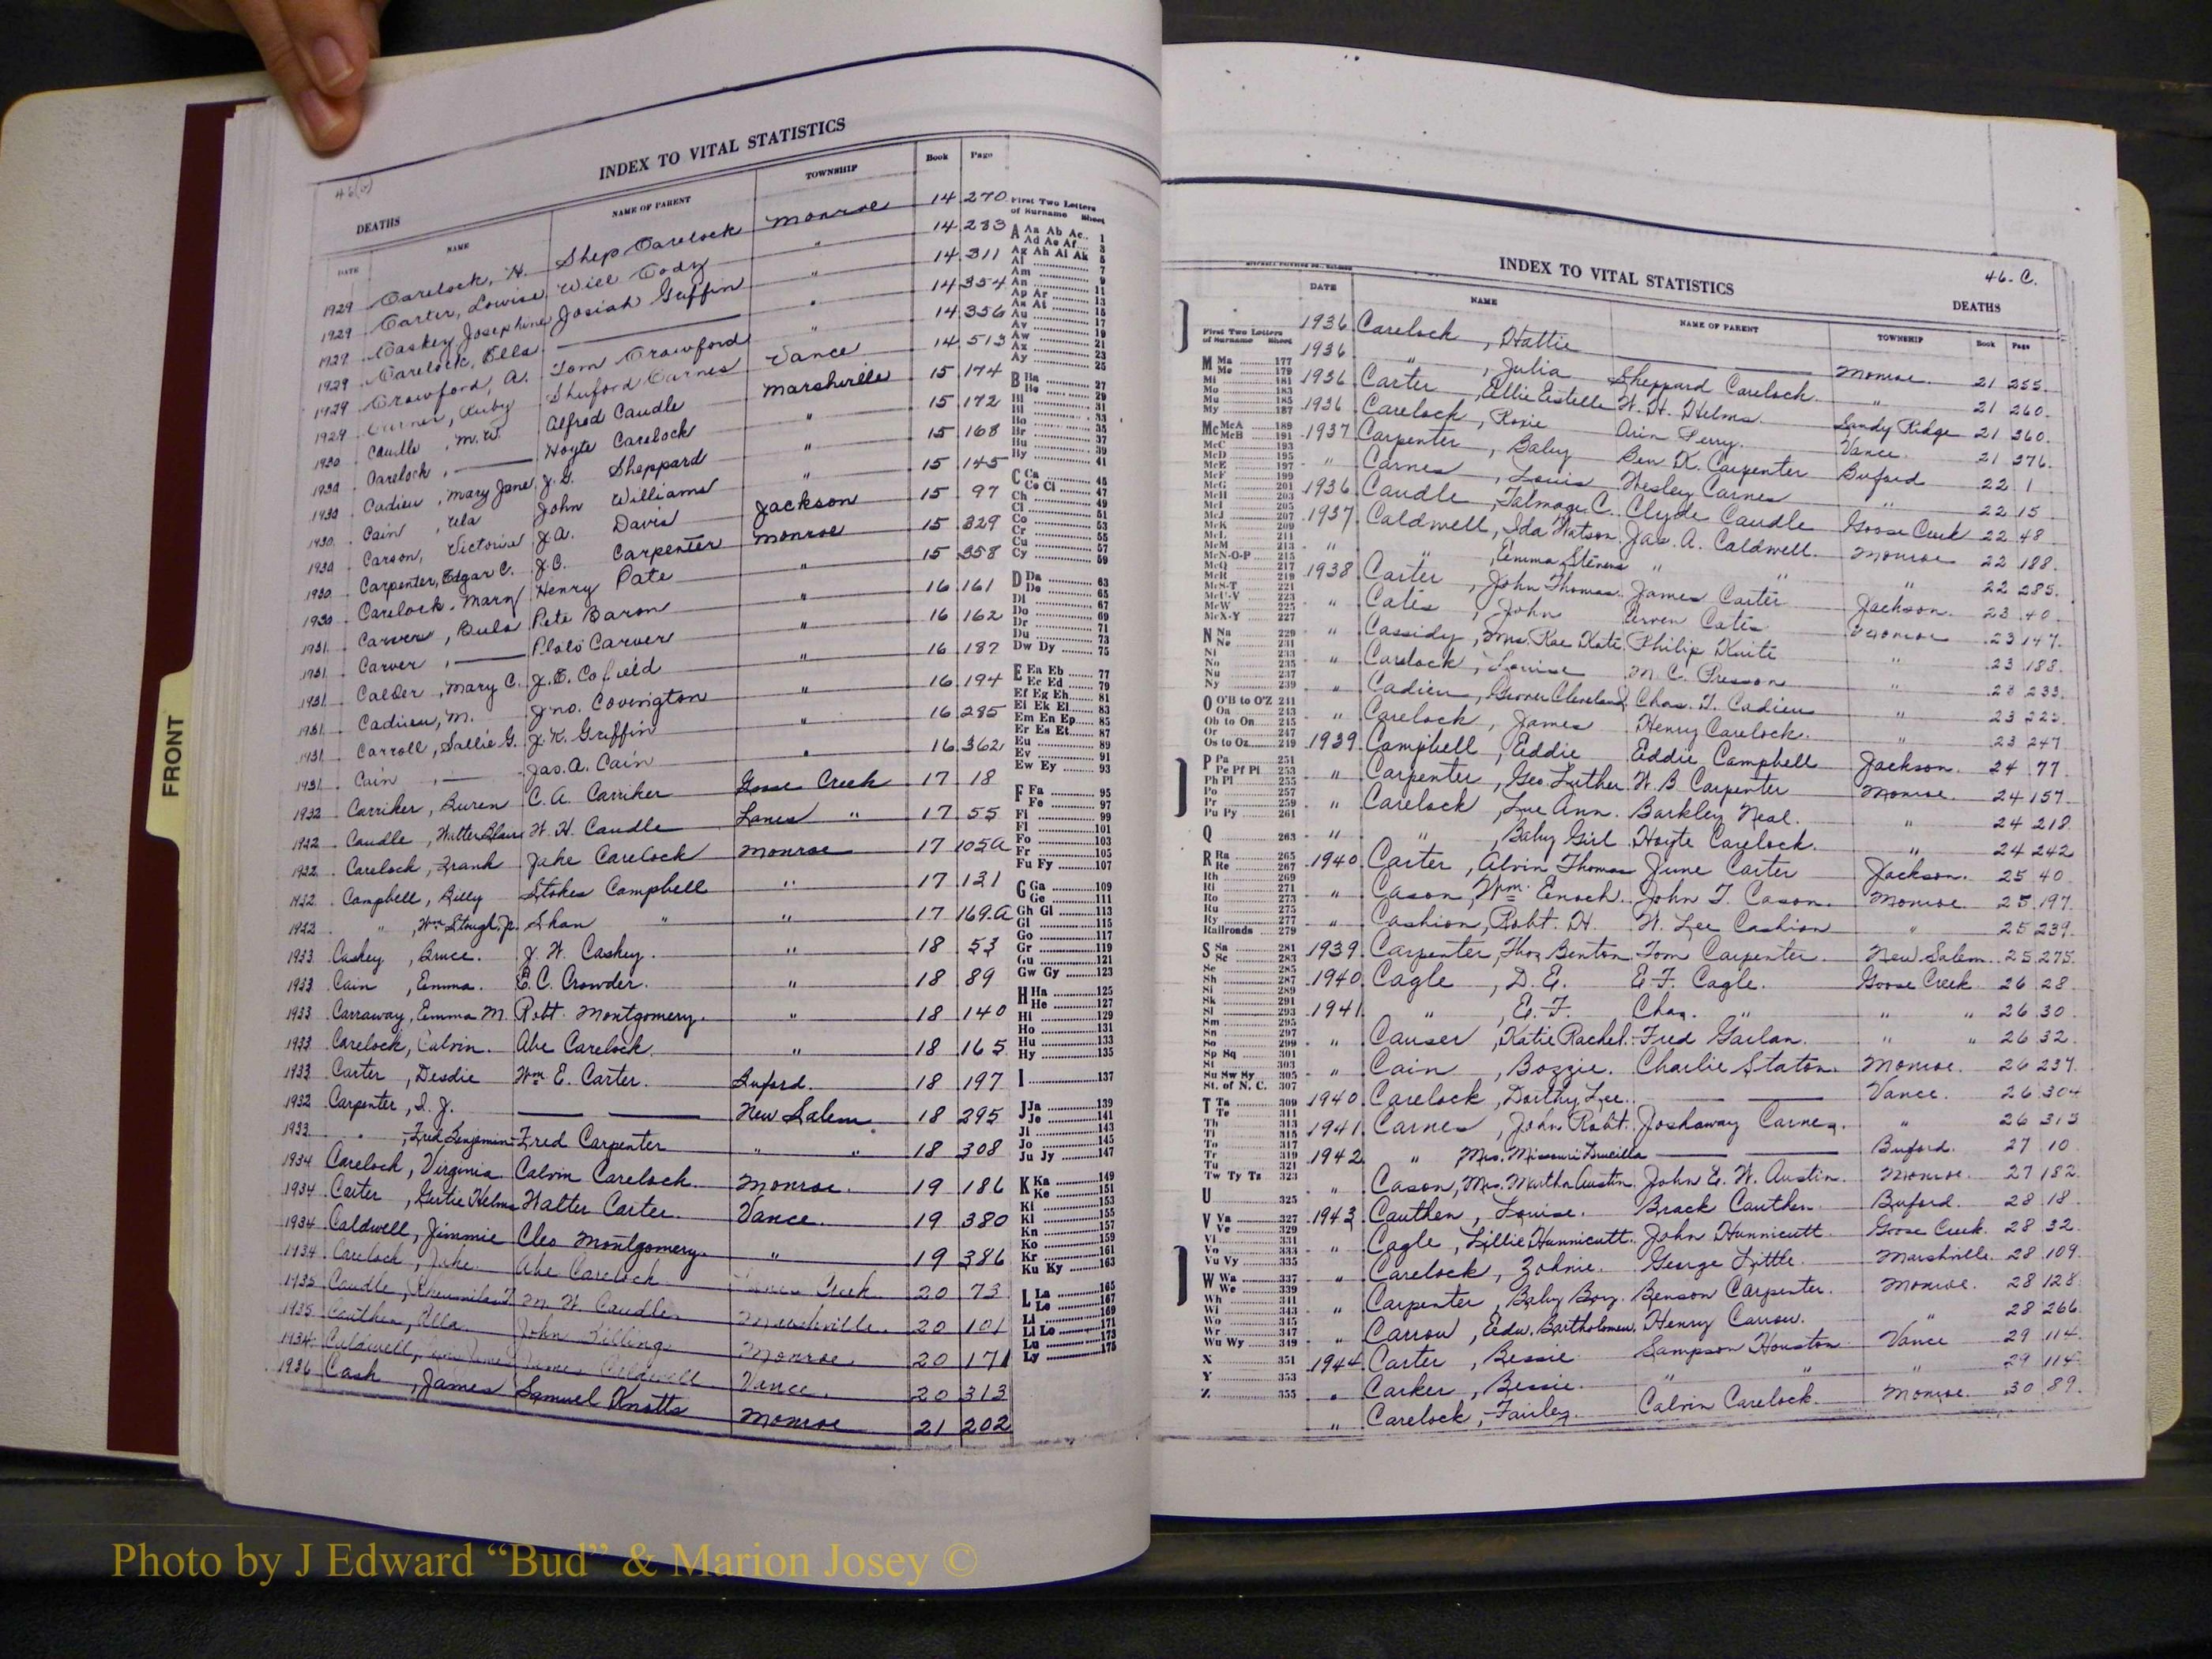 46(b)
INDEX TO VITAL STATISTICS
DEATHS
DATE NAME NAME OF PARENT TOWNSHIP Book Page
1929 Carelock, H. Shep Carelock Monroe 14 270
1929 Carter, Louise Will Cody " 14 283
1929 Caskey Josephine Josiah Griffin " 14 311
1929 Carelock, Ella " 14 354
1929 Crowford, A. Tom Crowford " 14 356
1929 Ruby Shuford Carnes Vance 14 513
1930 Caudle, M.W. Alfred Caudle Marshville 15 174
1930 Carelock, Hoyte Carelock " 15 172
1930 Cadieu, Mary Jane J.G. Sheppard " 15 168
1930 Cain, Ula John Williams " 15 145
1930 Carson, Victoria J.A. Davis Jackson 15 97
1930 Carpenter, Edgar C. J.C. Carpenter Monroe 15 329
1930 Carelock, Mary Henry Pate " 15 358
1931 Carver, Bula Pete Baron " 16 161
1931 Carver, Carver " 16 162
1931 Calder, Mary C. J.E. Cofield " 16 187
1931 Cadieu, M. Jno. Covington " 16 194
1931 Carroll, Sallie G. J.K. Griffin " 16 285
1931 Cain, Jas. A. Cain " 16 362
1932 Carriker, Buren C.A. Carriker Goose Creek 17 18
1932 Caudle, Walter W.H. Caudle Lanes " 17 55
1932 Carelock, Frank Jake Carelock Monroe 17 105A
1932 Campbell, Billy Stokes Campbell " 17 131
1932 " , Wm Stough, Jr. Shan " " 17 169.A
1933 Caskey, Bruce. J.W. Caskey. " 18 53
1933 Cain, Emma. E.C. Crowder. " 18 89
1933 Carraway, Emma M. Robt. Montgomery. " 18 140
1933 Carelock, Calvin. Abe Carelock. " 18 165
1933 Carter, Desdie Wm. E. Carter. Buford. 18 197
1932 Carpenter, I.J. New Salem. 18 295
1933 " , Fred Benjamin Fred Carpenter " " 18 308
1934 Carelock, Virginia Calvin Carelock. Monroe. 19 186
1934 Carter, Gertie Helms Walter Carter. Vance. 19 380
1934 Caldwell, Jimmie Cleo Montgomery. " 19 386
1934 Carelock, Jake. Abe Carelock. Creek 20 73
1935 Caudle, M.W. Caudle Marshville. 20 101
1935 Cauthen, Ella. John Monroe. 20 171
1934 Caldwell, James Caldwell Vance. 20 313
1936 Cash, James Samuel Knotts Monroe 21 202
First Two Letters of Surname Sheet
A Aa Ab Ac 1
Ad Ae Af 3
Ag Ah Ai Ak 5
Al 7
Am 9
An 11
Ap Ar 13
As At 15
Au 17
Av 19
Aw 21
Az 23
Ay 25
B Ba 27
Be 29
Bi 31
Bl 33
Bo 35
Br 37
Bu 39
By 41
C Ca 45
Ce Ci 47
Ch 49
Cl 51
Co 53
Cr 55
Cu 57
Cy 59
D Da 63
De 65
Di 67
Do 69
Dr 71
Du 73
Dw Dy 75
E Ea Eb 77
Ec Ed 79
Ef Eg Eh 81
Ei Ek El 83
Em En Ep 85
Er Es Et 87
Eu 89
Ev 91
Ew Ey 93
F Fa 95
Fe 97
Fi 99
Fl 101
Fo 103
Fr 105
Fu Fy 107
G Ga 109
Ge 111
Gh Gi 113
Gl 115
Go 117
Gr 119
Gu 121
Gw Gy 123
H Ha 125
He 127
Hi 129
Ho 131
Hu 133
Hy 135
I 137
J Ja 139
Je 141
Ji 143
Jo 145
Ju Jy 147
K Ka 149
Ke 151
Ki 153
Kl 155
Kn 157
Ko 159
Kr 161
Ku Ky 163
L La 165
Le 167
Li 169
Ll Lo 171
Lu 173
Ly 175
46. C.
INDEX TO VITAL STATISTICS
DEATHS
DATE NAME NAME OF PARENT TOWNSHIP Book Page
1936 Carelock, Hattie Monroe. 21 255.
1936 " , Julia Sheppard Carelock. " 21 260.
1936 Carter, Allie Estelle W.H. Helms. Sandy Ridge 21 360.
1936 Carelock, Roxie Arin Perry. Vance. 21 376.
1937 Carpenter, Baby Ben K. Carpenter Buford 22 1
" Carnes, Louis Wesley Carnes " 22 15
1936 Caudle, Talmage C. Clyde Caudle Goose Creek 22 48
1937 Caldwell, Ida Watson. Jas. A. Caldwell. Monroe 22 188.
" " , Emma Stevens " " " 22 285.
1938 Carter, John Thomas. James Carter Jackson. 23 40.
" Cates, John Erven Cates Monroe 23 147.
" Cassidy, Mrs. Rae Kate Philip Kaite " 23 188.
" Carelock, Louise M.C. Presson " 23 233.
" Cadieu, Grover Cleveland Chas. T. Cadieu " 23 223.
" Carelock, James Henry Carelock. " 23 247
1939 Campbell, Eddie Eddie Campbell Jackson. 24 77.
" Carpenter, Geo. Luther W.B. Carpenter Monroe. 24 157.
" Carelock, Lue Ann. Barkley Neal. " 24 218.
" " , Baby Girl Hoyte Carelock. " 24 242
1940 Carter, Alvin Thomas June Carter Jackson. 25 40.
" Cason, Wm. Enoch. John T. Cason. Monroe 25 197.
" Cashion, Robt. H. W. Lee Cashion " 25 239.
1939 Carpenter, Thos Benton Tom Carpenter. New Salem. 25 275.
1940 Cagle, D.E. E.F. Cagle. Goose Creek. 26 28
1941 " , E.F. Chas. " " " 26 30
" Causer, Katie Rachel. Fred Garlan. " " 26 32.
" Cain, Bozzie. Charlie Staton. Monroe. 26 237.
1940 Carelock, Dorthy Lee. Vance. 26 304
1941 Carnes, John Robt. Joshaway Carnes. " 26 313
1942 " Mrs. Missouri Drucilla Buford. 27 10
" Cason, Mrs. Martha Austin. John E.W. Austin. Monroe. 27 182.
1943 Cauthen, Louise. Brack Cauthen. Buford. 28 18.
" Cagle, Lillie Hunnicutt. John Hunnicutt. Goose Creek. 28 32.
" Carelock, Zohnie. George Little. Marshville. 28 109.
" Carpenter, Baby Boy. Benson Carpenter. Monroe. 28 128.
" Carrow, Edw. Bartholomew. Henry Carrow. " 28 266.
1944 Carter, Bessie Sampson Houston Vance 29 114.
" Carker, Bessie. " " 29 114.
" Carelock, Fairley. Calvin Carelock. Monroe. 30 89.
First Two Letters of Surname Sheet
M Ma 177
Me 179
Mi 181
Mo 183
Mu 185
My 187
Mc McA 189
McB 191
McC 193
McD 195
McE 197
McF 199
McG 201
McH 203
McI 205
McJ 207
McK 209
McL 211
McM 213
McN-O-P 215
McQ 217
McR 219
McS-T 221
McU-V 223
McW 225
McX-Y 227
N Na 229
Ne 231
Ni 233
No 235
Nu 237
Ny 239
O O'B to O'Z 241
Oa 243
Ob to On 245
Or 247
Os to Oz 249
P Pa 251
Pe Pf Pi 253
Ph Pl 255
Po 257
Pr 259
Pu Py 261
Q 263
R Ra 265
Re 267
Rh 269
Ri 271
Ro 273
Ru 275
Ry 277
Railroads 279
S Sa 281
Sc 283
Se 285
Sh 287
Si 289
Sk 291
Sl 293
Sm 295
Sn 297
So 299
Sp Sq 301
St 303
Su Sw Sy 305
St. of N. C. 307
T Ta 309
Te 311
Th 313
Ti 315
To 317
Tr 319
Tu 321
Tw Ty Tz 323
U 325
V Va 327
Ve 329
Vi 331
Vo 333
Vu Vy 335
W Wa 337
We 339
Wh 341
Wi 343
Wo 345
Wr 347
Wu Wy 349
X 351
Y 353
Z 355
FRONT
Photo by J Edward “Bud” & Marion Josey ©